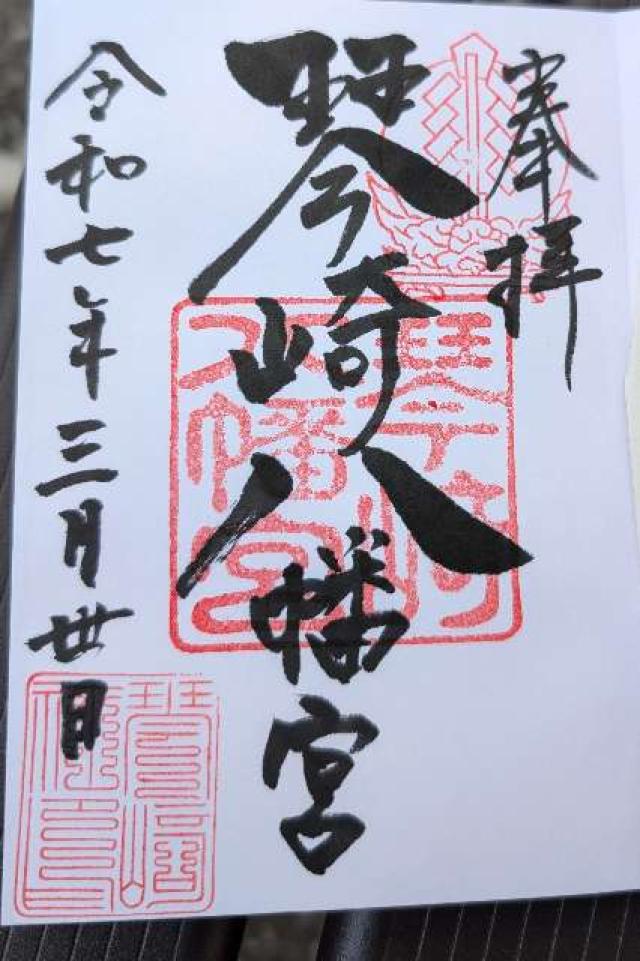 奉拝
琴崎八幡宮
令和七年三月卅日
琴崎八幡宮